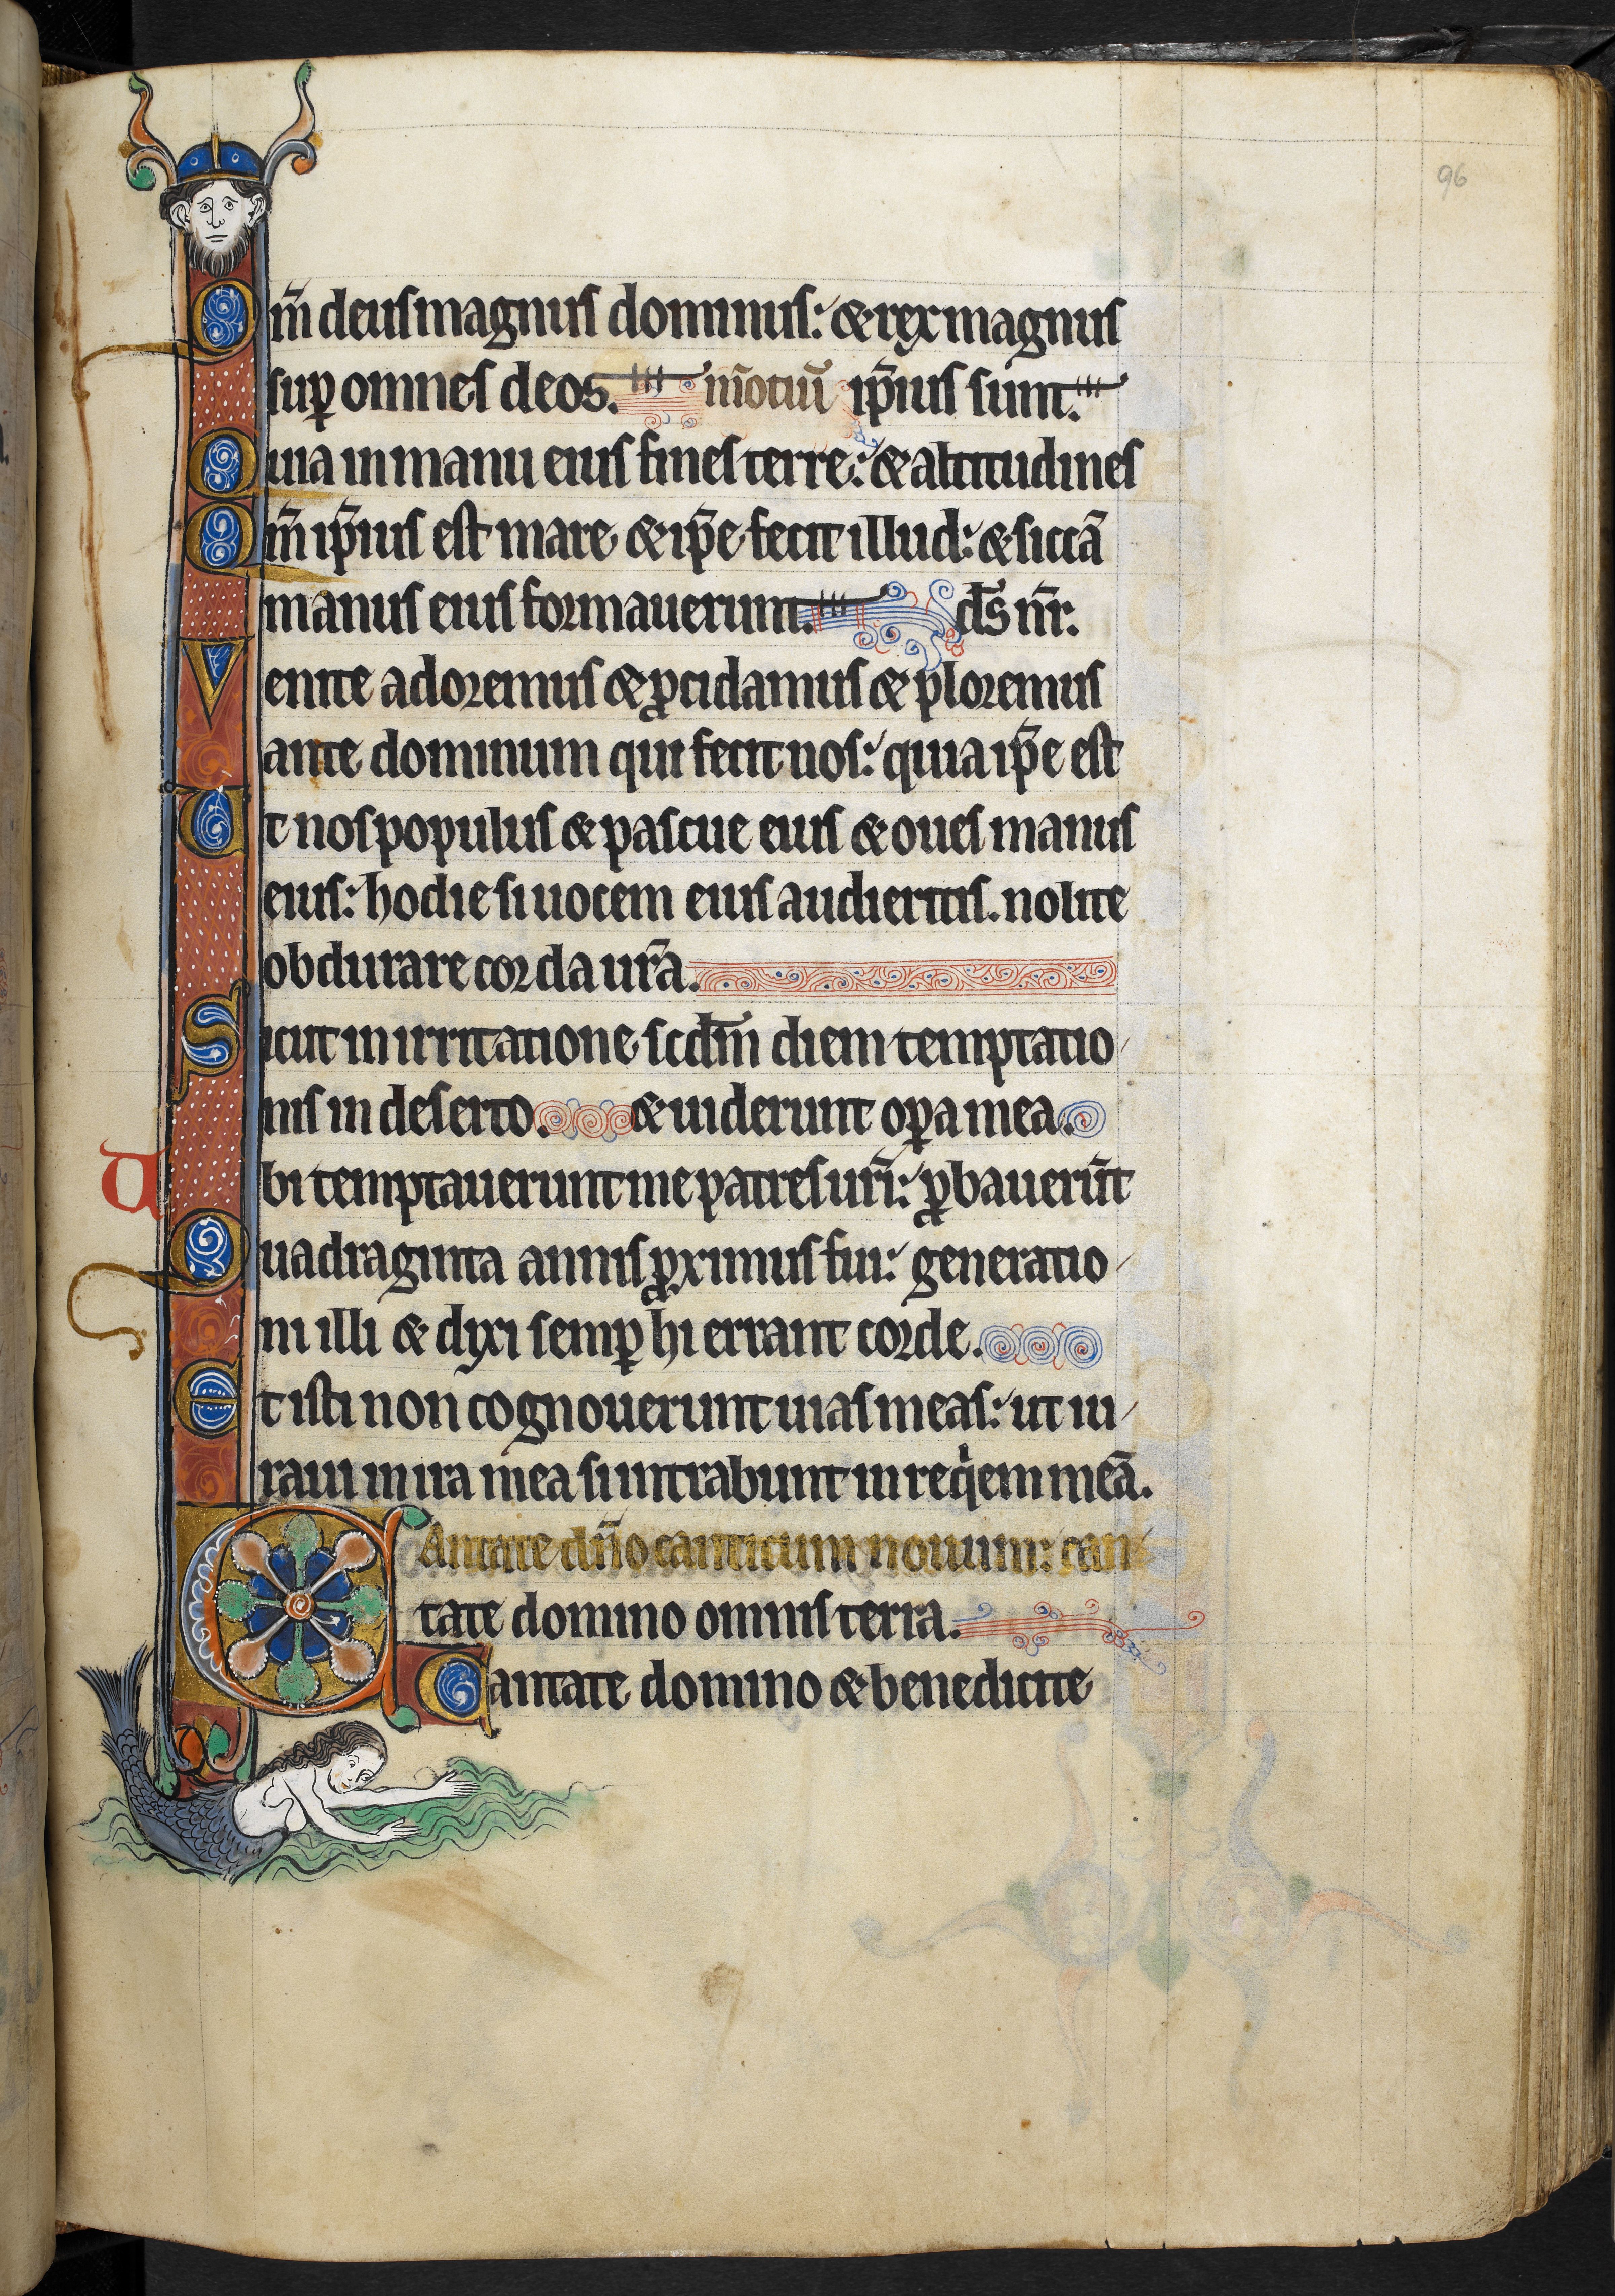 96
Qm̄ deus magnus dominus: & rex magnus
suꝑ omnes deos. m̄otiū ip̄ius sunt.
Quia in manu eius fines terre: & altitudines
Qm̄ ip̄ius est mare & ip̄e fecit illud: & siccā
manus eius formauerunt. ds̄ nr̄.
Venite adoremus & ꝓcidamus & ploremus
ante dominum qui fecit nos: quia ip̄e est
Et nos populus & pascue eius & oues manus
eius: hodie si uocem eius audieritis. nolite
obdurare corda ur̄a.
Sicut in irritatione scdm̄ diem temptatio
nis in deserto. & uiderunt oꝑa mea.
Ubi temptauerunt me patres ur̄i: ꝓbauerūt
Quadraginta annis ꝓximus fui: generatio
ni illi & dixi semꝑ hi errant corde.
Et isti non cognouerunt uias meas: ut iu
raui in ira mea si intrabunt in reqͥem meā.
CAntate dn̄o canticum nouum: can
tate domino omnis terra.
Cantate domino & benedicite